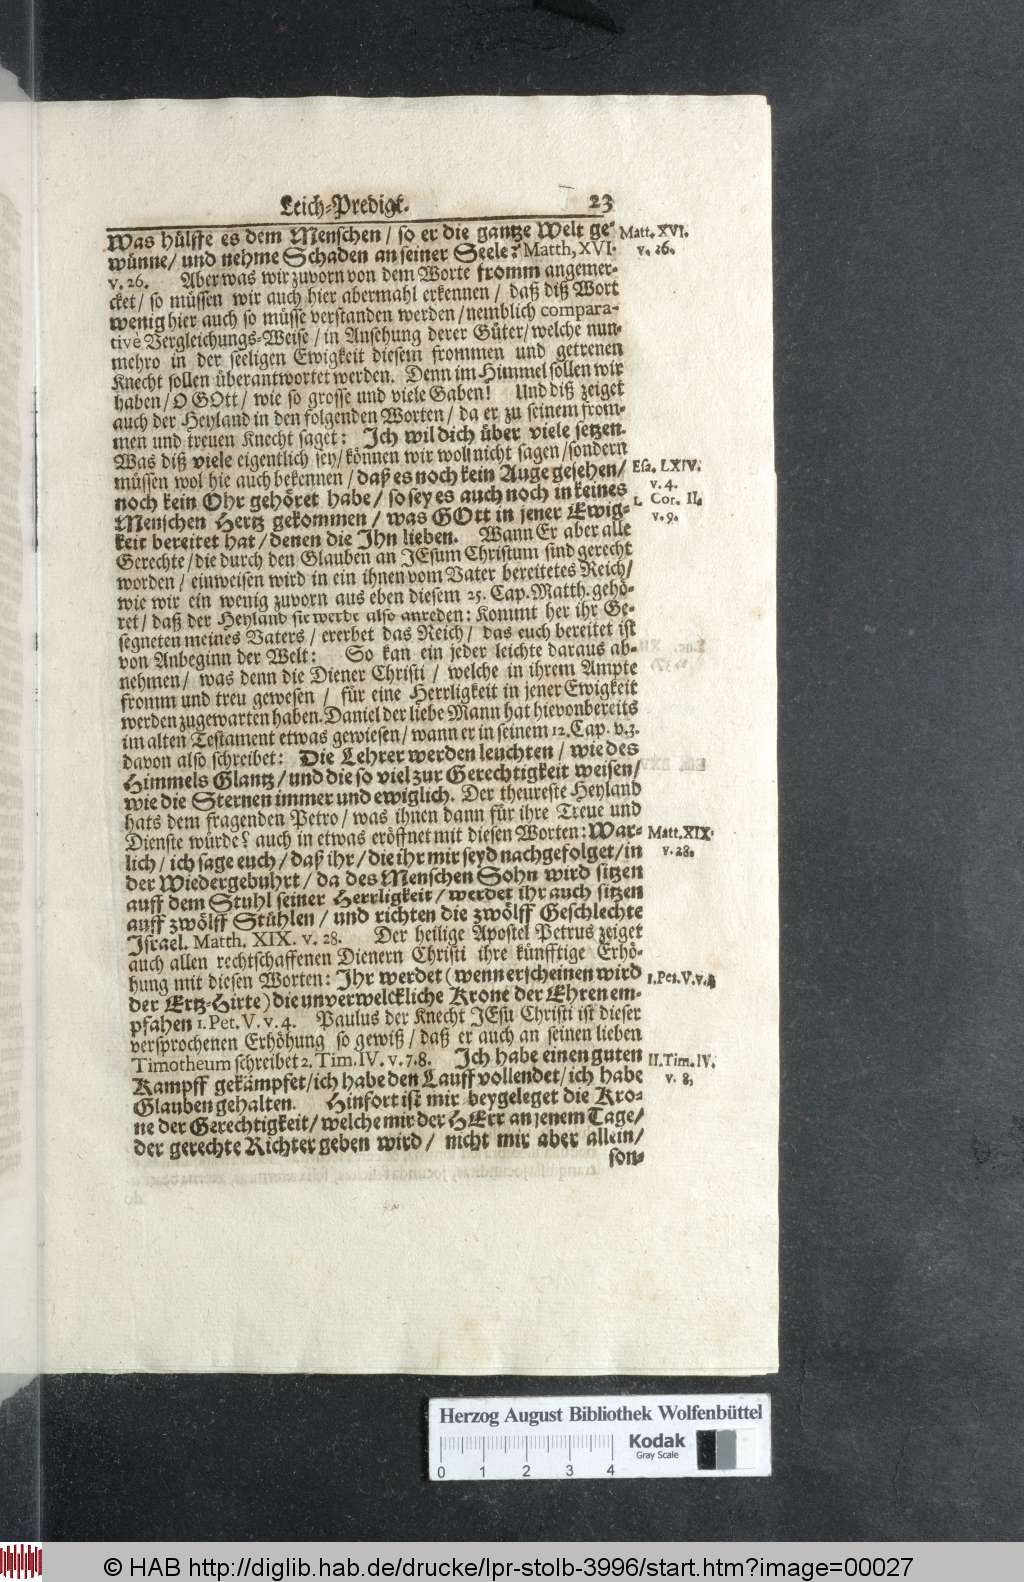 Leich-Predigt. 23
Was hülffe es dem Menschen / so er die gantze Welt ge-
wünne / und nehme Schaden an seiner Seele? Matth, XVI.
v. 26. Aber was wir zuvorn von dem Worte fromm angemer-
cket / so müssen wir auch hier abermahl erkennen / daß diß Wort
wenig hier auch so müsse verstanden werden / nemblich compara-
tivè Vergleichungs-Weise / in Ansehung derer Güter / welche nun-
mehro in der seeligen Ewigkeit diesem frommen und getrenen
Knecht sollen überantwortet werden. Denn im Himmel sollen wir
haben / O GOtt / wie so grosse und viele Gaben! Und diß zeiget
auch der Heyland in den folgenden Worten / da er zu seinem from-
men und treuen Knecht saget: Ich wil dich über viele setzen.
Was diß viele eigentlich sey / können wir wol nicht sagen / sondern
müssen wol hie auch bekennen / daß es noch kein Auge gesehen /
noch kein Ohr gehöret habe / so sey es auch noch in keines
Menschen Hertz gekommen / was GOtt in jener Ewig-
keit bereitet hat / denen die Ihn lieben. Wann Er aber alle
Gerechte / die durch den Glauben an JEsum Christum sind gerecht
worden / einweisen wird in ein ihnen vom Vater bereitetes Reich /
wie wir ein wenig zuvorn aus eben diesem 25. Cap. Matth. gehö-
ret / daß der Heyland sie werde also anreden: Kommt her ihr Ge-
segneten meines Vaters / ererbet das Reich / das euch bereitet ist
von Anbeginn der Welt: So kan ein jeder leichte daraus ab-
nehmen / was denn die Diener Christi / welche in ihrem Ampte
fromm und treu gewesen / für eine Herrligkeit in jener Ewigkeit
werden zugewarten haben. Daniel der liebe Mann hat hievon bereits
im alten Testament etwas gewiesen / wann er in seinem 12. Cap. v. 3.
davon also schreibet: Die Lehrer werden leuchten / wie des
Himmels Glantz / und die so viel zur Gerechtigkeit weisen /
wie die Sternen immer und ewiglich. Der theureste Heyland
hats dem fragenden Petro / was ihnen dann für ihre Treue und
Dienste würde? auch in etwas eröffnet mit diesen Worten: War-
lich / ich sage euch / daß ihr / die ihr mir seyd nachgefolget / in
der Wiedergebuhrt / da des Menschen Sohn wird sitzen
auff dem Stuhl seiner Herrligkeit / werdet ihr auch sitzen
auff zwölff Stühlen / und richten die zwölff Geschlechte
Israel. Matth. XIX. v. 28. Der heilige Apostel Petrus zeiget
auch allen rechtschaffenen Dienern Christi ihre künfftige Erhö-
hung mit diesen Worten: Ihr werdet (wenn erscheinen wird
der Ertz-Hirte) die unverwelckliche Krone der Ehren em-
pfahen 1. Pet. V. v. 4. Paulus der Knecht JEsu Christi ist dieser
versprochenen Erhöhung so gewiß / daß er auch an seinen lieben
Timotheum schreibet 2. Tim. IV. v. 7. 8. Ich habe einen guten
Kampff gekämpfet / ich habe den Lauff vollendet / ich habe
Glauben gehalten. Hinfort ist mir beygeleget die Kro-
ne der Gerechtigkeit / welche mir der HErr an jenem Tage /
der gerechte Richter geben wird / nicht mir aber allein /
son-
Matt. XVI.
v. 26.
Esa. LXIV.
v. 4.
1. Cor. II.
v. 9.
Matt. XIX.
v. 28.
1. Pet. V. v. 4
II. Tim. IV.
v. 8.
Herzog August Bibliothek Wolfenbüttel
Kodak
Gray Scale
0 1 2 3 4
© HAB http://diglib.hab.de/drucke/lpr-stolb-3996/start.htm?image=00027